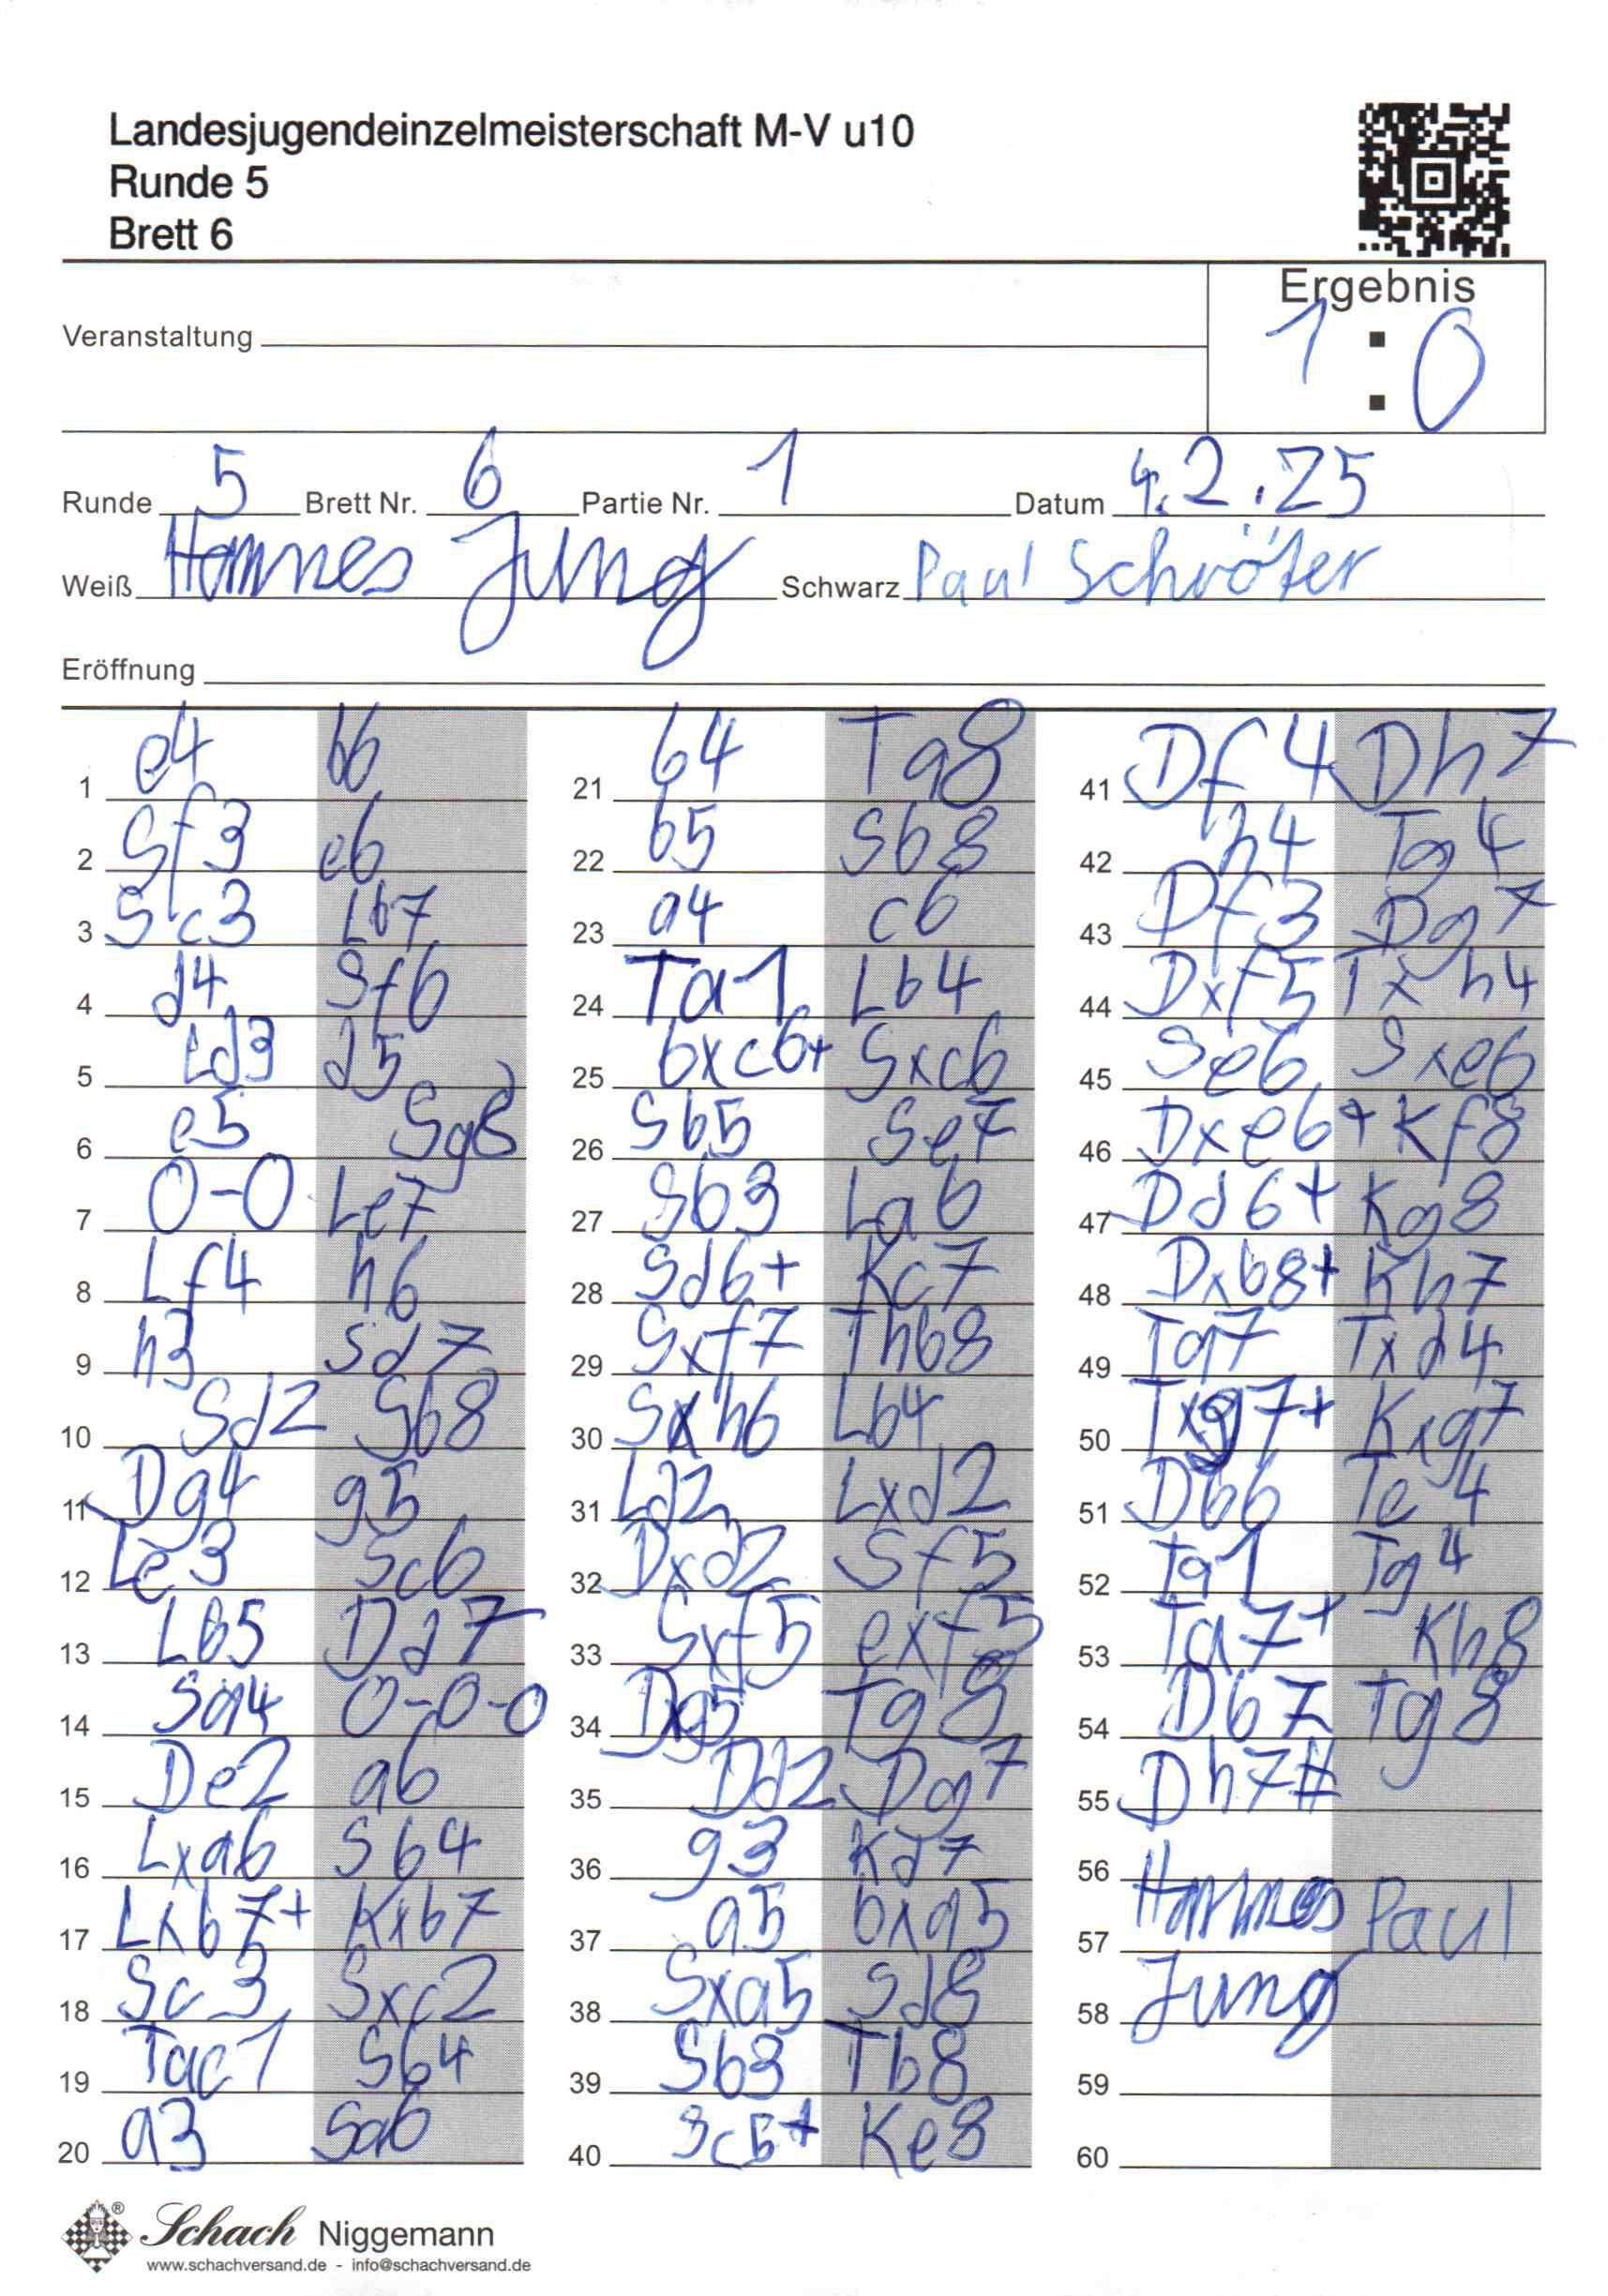 Landesjugendeinzelmeisterschaft M-V u10
Runde 5
Brett 6
Ergebnis
1 : 0
Veranstaltung
Runde 5 Brett Nr. 6 Partie Nr. 1 Datum 4.2.25
Weiß Hannes Jung Schwarz Paul Schröter
Eröffnung
1 e4 b6
2 Sf3 e6
3 Sc3 Lb7
4 d4 Sf6
5 Ld3 d5
6 e5 Sg8
7 0-0 Le7
8 Lf4 h6
9 h3 Sd7
10 Sd2 Sb8
11 Dg4 g5
12 Le3 Sc6
13 Lb5 Dd7
14 Sa4 0-0-0
15 De2 a6
16 Lxa6 Sb4
17 Lxb7+ Kxb7
18 Sc3 Sxc2
19 Tac1 Sb4
20 a3 Sa6
21 b4 Ta8
22 b5 Sb8
23 a4 c6
24 Ta1 Lb4
25 bxc6+ Sxc6
26 Sb5 Se7
27 Sb3 La6
28 Sd6+ Kc7
29 Sxf7 Thb8
30 Sxh6 Lb4
31 Ld2 Lxd2
32 Dxd2 Sf5
33 Sxf5 exf5
34 Dxg5 Tg8
35 Dd2 Dg7
36 g3 Kd7
37 a5 bxa5
38 Sxa5 Sd8
39 Sb3 Tb8
40 Sc5+ Ke8
41 Df4 Dh7
42 h4 Tg4
43 Df3 Dg7
44 Dxf5 Txh4
45 Se6 Sxe6
46 Dxe6+ Kf8
47 Dd6+ Kg8
48 Dxb8+ Kh7
49 Ta7 Txd4
50 Txg7+ Kxg7
51 Db6 Te4
52 Ta1 Tg4
53 Ta7+ Kh8
54 Db7 Tg8
55 Dh7#
56 Hannes
57 Paul
58 Jung
59
60
Schach Niggemann
www.schachversand.de - info@schachversand.de